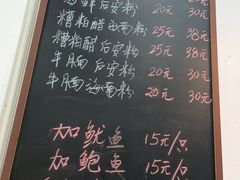 海鲜后安粉 20元 30元
糟粕醋海南粉 25元 38元
糟粕醋后安粉 25元 38元
牛腩后安粉 20元 30元
牛腩海南粉 20元 30元
加鱿鱼 15元/只
加鲍鱼 15元/只